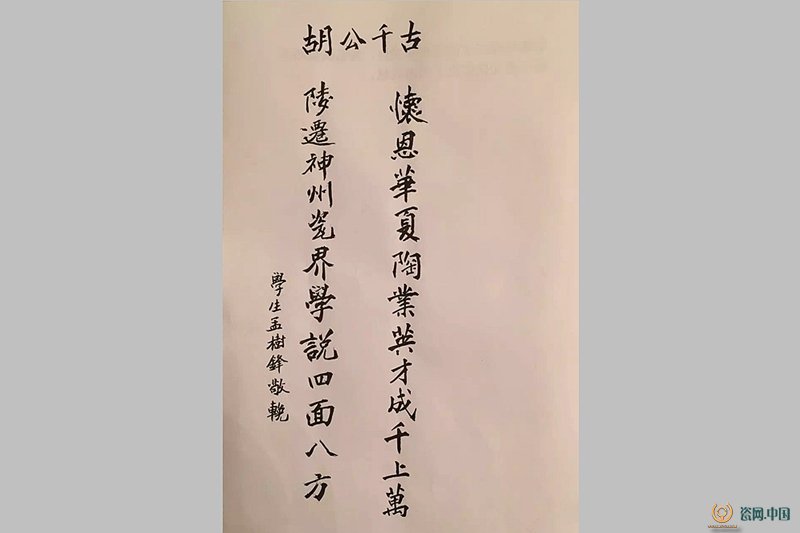 胡公千古
懷恩華夏陶業英才成千上萬
陵遷神州瓷界學説四面八方
學生孟樹鋒敬輓
瓷网.中国